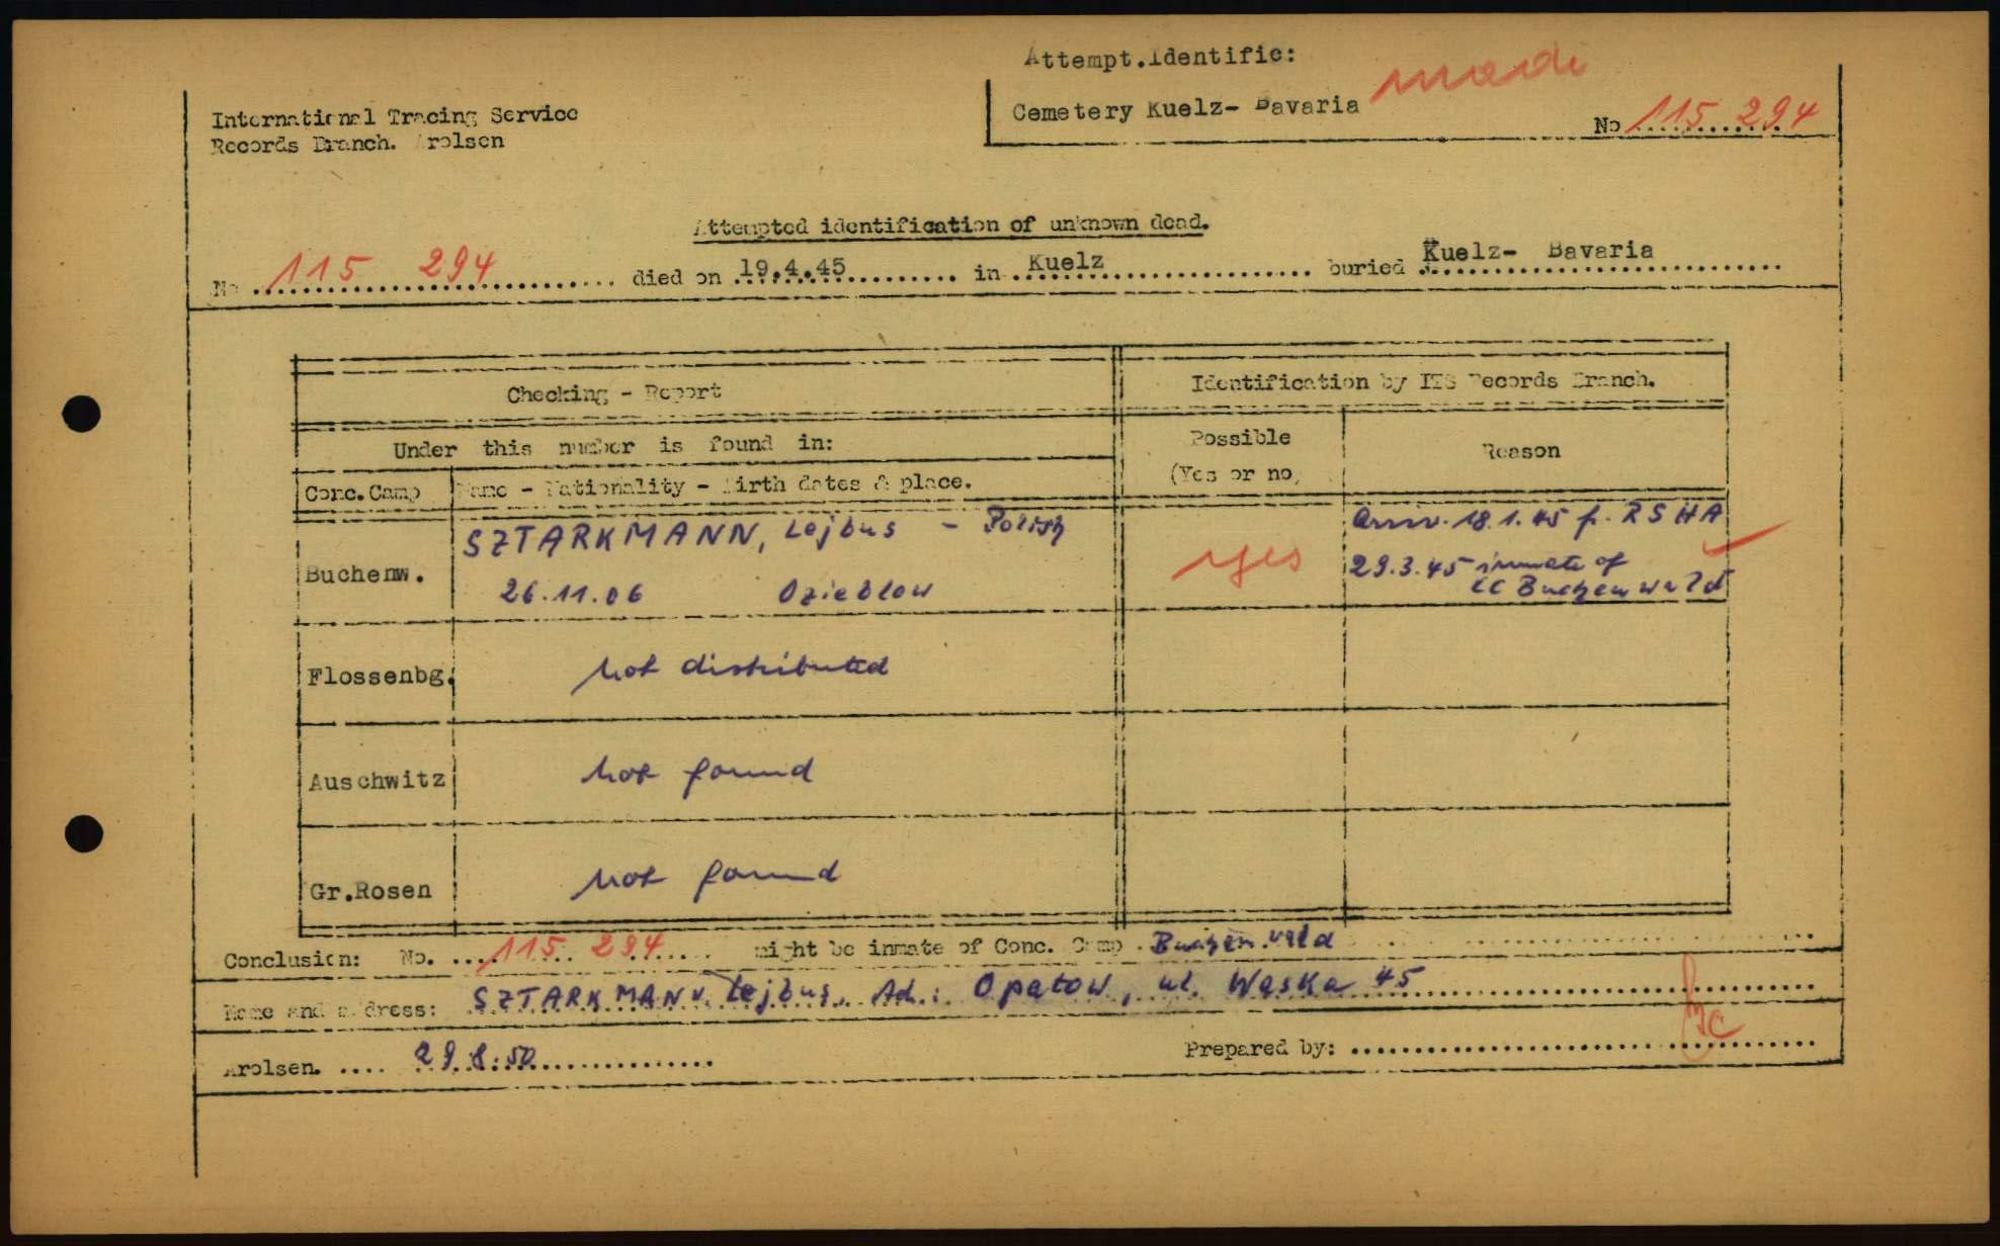 Attempt.Identific:
made
International Tracing Service
Cemetery Kuelz- Bavaria
No 115 294
Records Branch. Arolsen
Attempted identification of unknown dead.
No 115 294 died on 19.4.45 in Kuelz buried Kuelz- Bavaria
Checking - Report
Identification by ITS Records Branch.
Under this number is found in:
Possible
(Yes or no)
Reason
Conc.Camp
Name - Nationality - Birth dates & place.
Buchenw.
SZTARKMANN, Lejbus - Polish
26.11.06 Ozieblow
yes
Arriv. 18.1.45 f. RSHA
29.3.45 inmate of
CC Buchenwald
Flossenbg.
not distributed
Auschwitz
not found
Gr.Rosen
not found
Conclusion: No. 115 294 might be inmate of Conc. Camp Buchenwald
Name and address: SZTARKMANN Lejbus, Ad.: Opatow, ul. Wąska 45
Arolsen. 29.8.50
Prepared by: